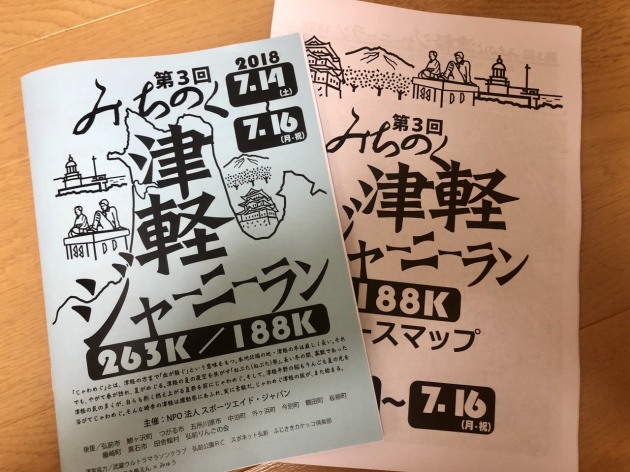 第3回
2018
7.14(土)
みちのく
7.16(月・祝)
津軽
ジャーニーラン
263K/188K
「じゃわめぐ」とは、津軽の方言で「血が騒ぐ」という意味をもつ。本州北端の地・津軽の冬は厳しく長い。それ
でも、やがて春が訪れ、夏がめぐる。
主催:NPO法人 スポーツエイド・ジャパン
後援/弘前市 鰺ヶ沢町 つがる市 五所川原市 中泊町 外ヶ浜町 今別町 鶴田町 板柳町
藤崎町 黒石市 田舎館村 弘前りんごの会
武蔵ウルトラマラソンクラブ 弘前公園RC スポネット弘前 ふじさきカケッコ倶楽部
第3回
みちのく
津軽
ジャーニーラン
188K
ースマップ
~7.16(月・祝)